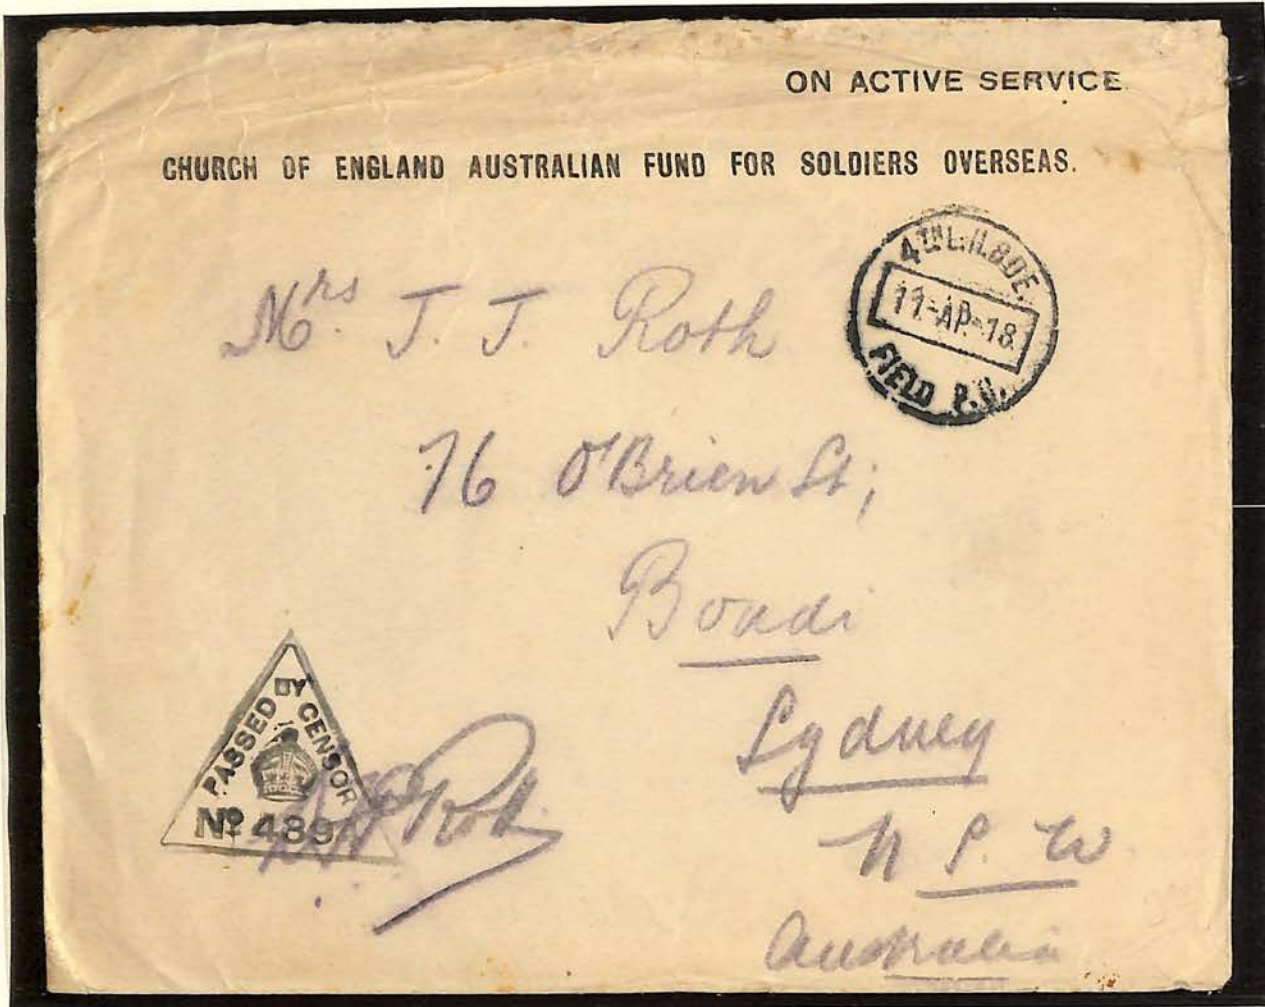 ON ACTIVE SERVICE.
CHURCH OF ENGLAND AUSTRALIAN FUND FOR SOLDIERS OVERSEAS.
4TH L.H.BDE.
11-AP-18
FIELD P.O.
Mrs. J. J. Roth
76 O'Brien St;
Bondi
Sydney
N S. W
Australia
PASSED BY CENSOR
No 489
Roth